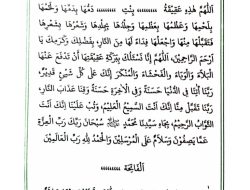 اَللّٰهُمَّ هٰذِهِ عَقِيْقَةُ ........ بِنْتِ ........ دَمُهَا بِدَمِهَا وَلَحْمُهَا
بِلَحْمِهَا وَعَظْمُهَا بِعَظْمِهَا وَجِلْدُهَا بِجِلْدِهَا وَشَعْرُهَا بِشَعْرِهَا
فَتَقَبَّلْهَا مِنْهَا وَاجْعَلْهَا فِدَاءً لَهَا مِنَ النَّارِ، بِفَضْلِكَ وَكَرَمِكَ يَا
اَرْحَمَ الرَّاحِمِيْنَ، اَللّٰهُمَّ اِنَّا نَسْئَلُكَ بِبَرَكَةِ عَقِيْقَتِهَا اَنْ تَدْفَعَ عَنْهَا
الْبَلَاءَ وَالْوَبَاءَ وَالْفَحْشَاءَ وَالْمُنْكَرَ اِنَّكَ عَلٰى كُلِّ شَيْئٍ قَدِيْرٌ،
رَبَّنَا اٰتِنَا فِى الدُّنْيَا حَسَنَةً وَفِى الْاٰخِرَةِ حَسَنَةً وَقِنَا عَذَابَ النَّارِ،
رَبَّنَا تَقَبَّلْ مِنَّا اِنَّكَ اَنْتَ السَّمِيْعُ الْعَلِيْمُ، وَتُبْ عَلَيْنَا اِنَّكَ اَنْتَ
التَّوَّابُ الرَّحِيْمُ، بِجَاهِ سَيِّدِنَا مُحَمَّدٍ ﷺ سُبْحَانَ رَبِّكَ رَبِّ الْعِزَّةِ
عَمَّا يَصِفُوْنَ وَسَلَامٌ عَلَى الْمُرْسَلِيْنَ وَالْحَمْدُ لِلّٰهِ رَبِّ الْعَالَمِيْنَ
اَلْفَاتِحَةْ